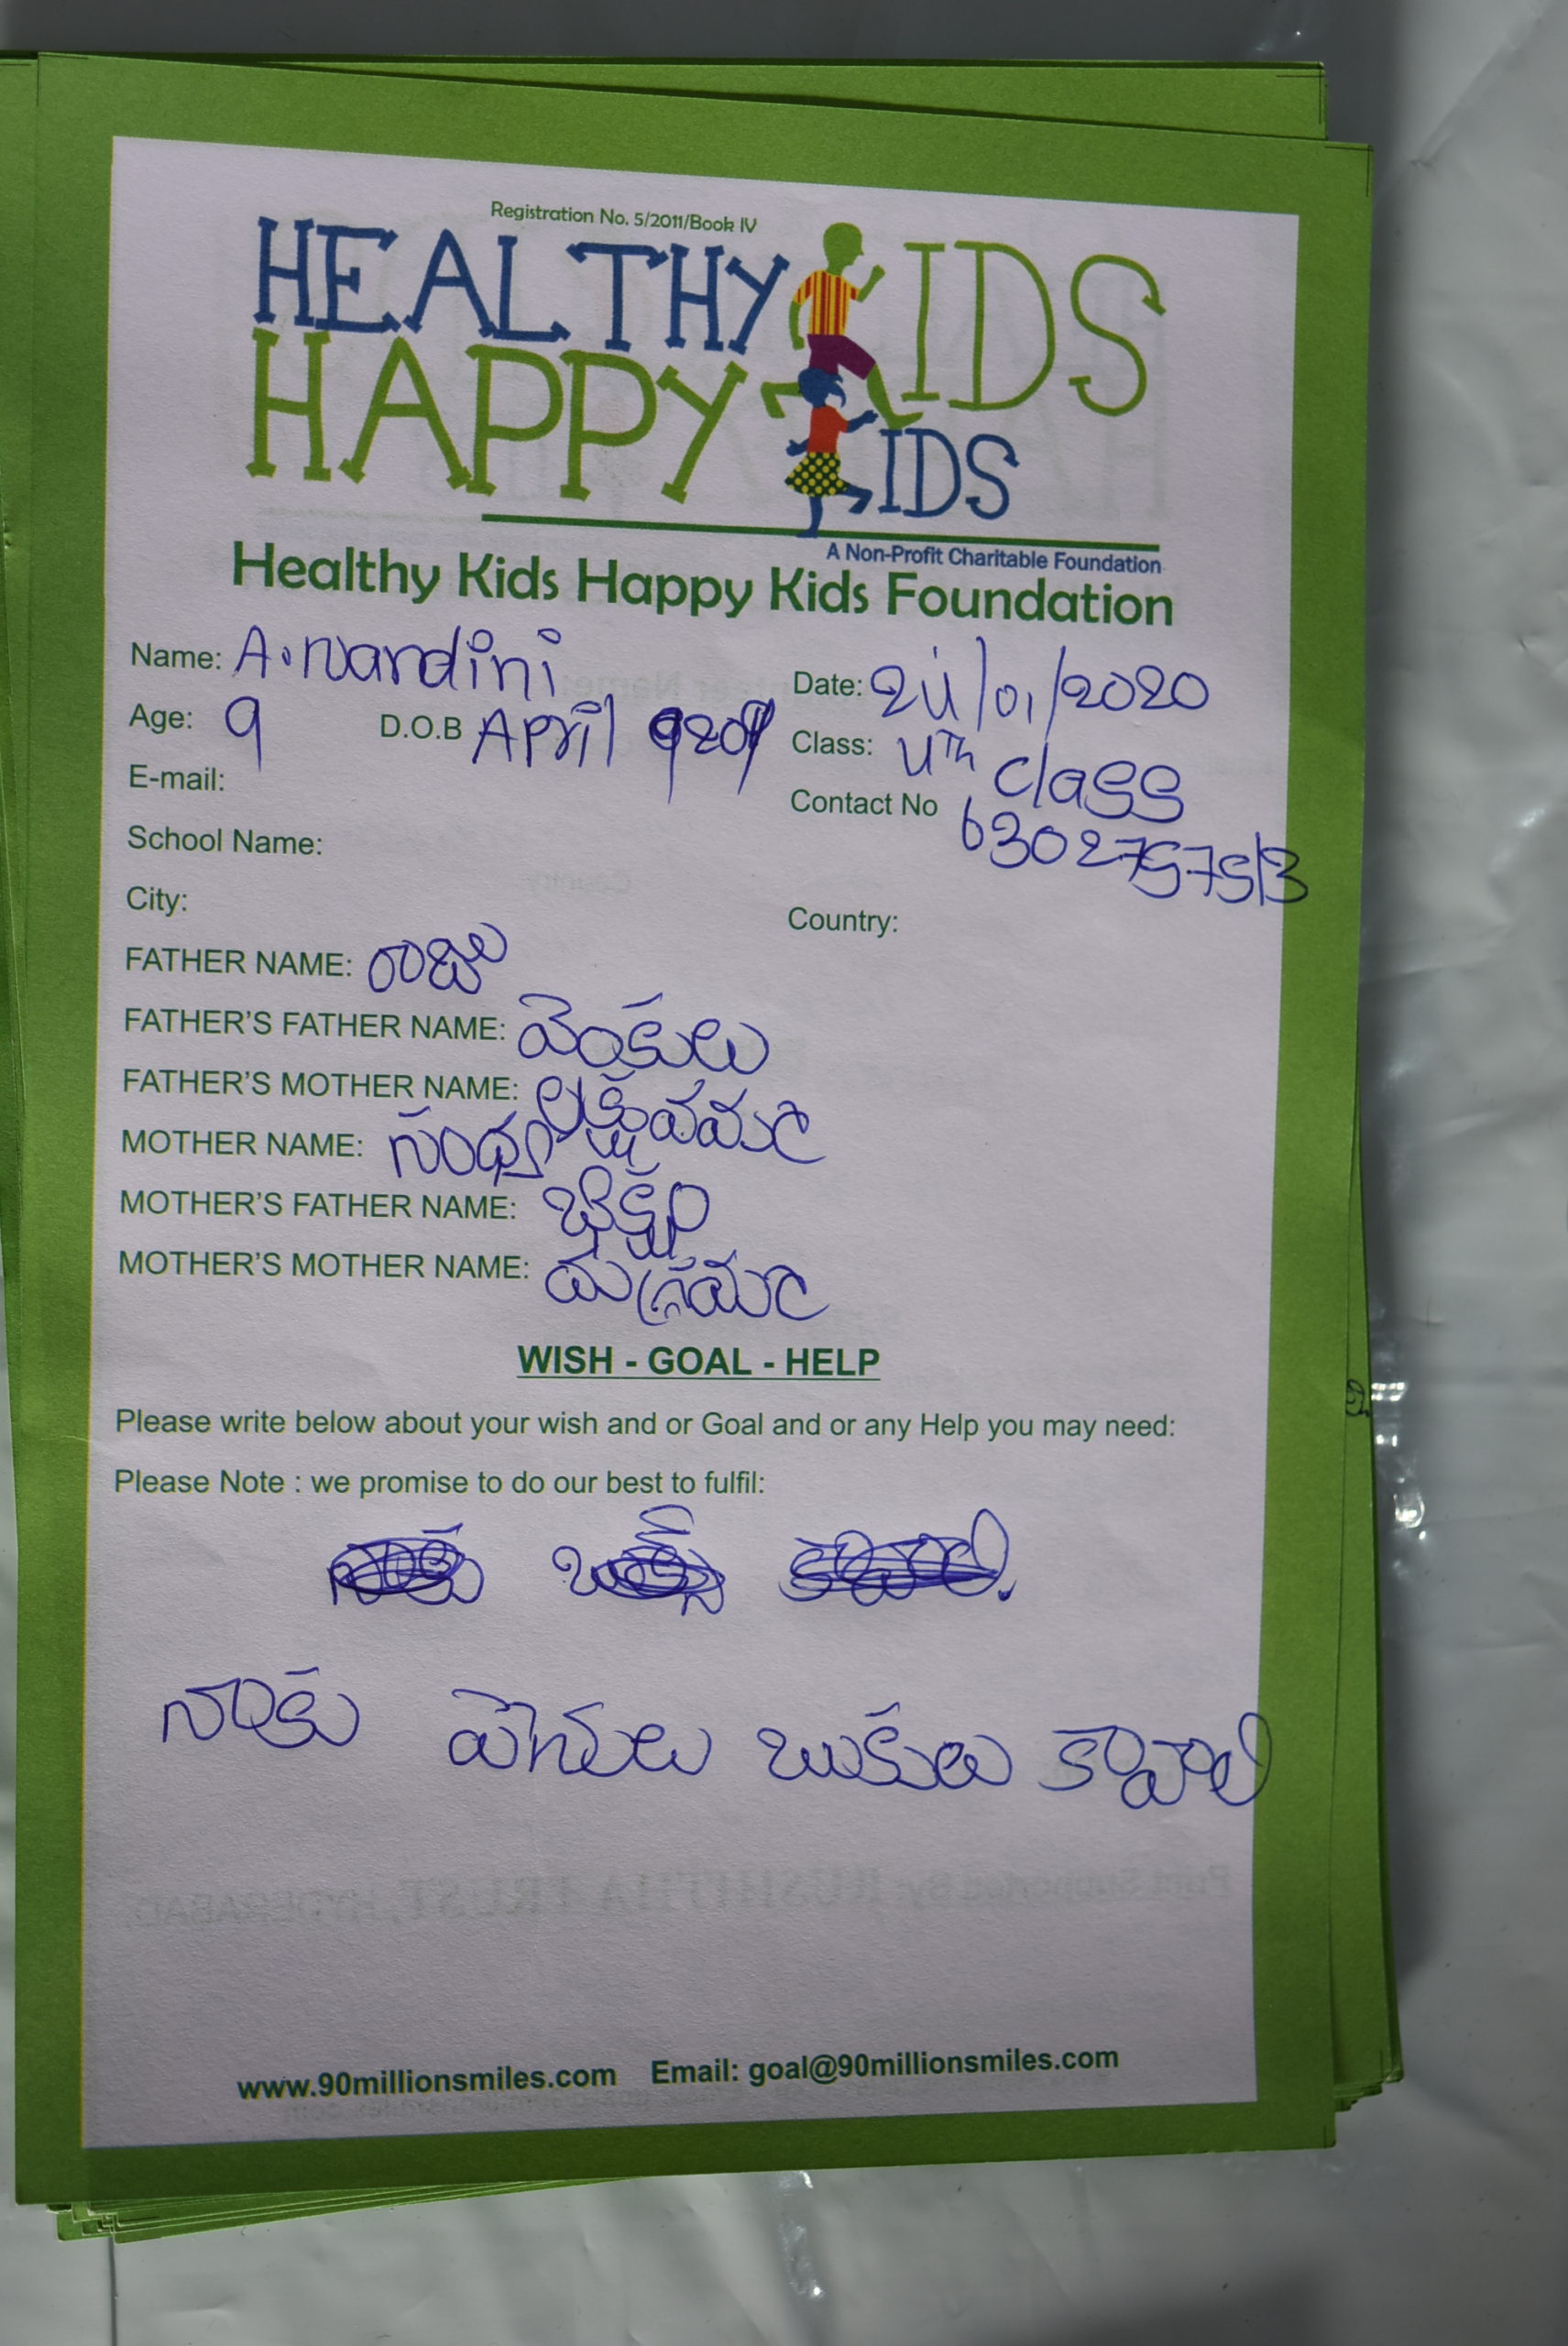 Registration No. 5/2011/Book IV
HEALTHY KIDS
HAPPY KIDS
A Non-Profit Charitable Foundation
Healthy Kids Happy Kids Foundation
Name: A. Nandini
Date: 24/01/2020
Age: 9 D.O.B April
Class: 4Th Class
E-mail:
Contact No 6302757513
School Name:
City:
Country:
FATHER NAME: రాజు
FATHER'S FATHER NAME: వెంకులు
FATHER'S MOTHER NAME:
MOTHER NAME: సంధ్య
MOTHER'S FATHER NAME: భిక్షం
MOTHER'S MOTHER NAME:
WISH - GOAL - HELP
Please write below about your wish and or Goal and or any Help you may need:
Please Note : we promise to do our best to fulfil:
నాకు పెనులు బుకులు కావాలి
www.90millionsmiles.com Email: goal@90millionsmiles.com